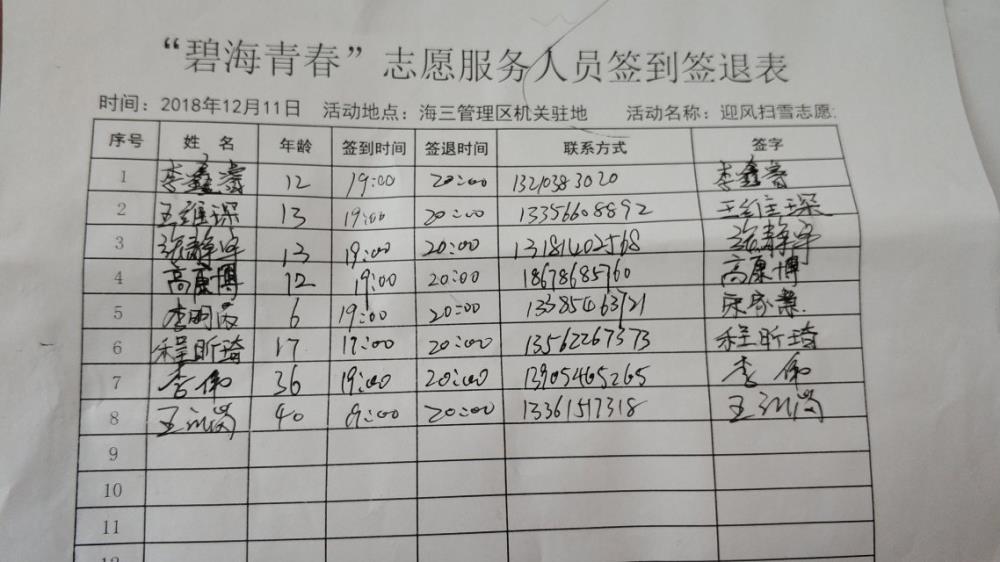 “碧海青春”志愿服务人员签到签退表
时间：2018年12月11日 活动地点：海三管理区机关驻地 活动名称：迎风扫雪志愿
序号 姓 名 年龄 签到时间 签退时间 联系方式 签字
1 李鑫睿 12 19:00 20:00 1321038 3020 李鑫睿
2 王维琛 13 19:00 20:00 13356608892 王维琛
3 张静宇 13 19:00 20:00 13181402568 张静宇
4 高康博 12 19:00 20:00 18678685760 高康博
5 李明 6 19:00 20:00 13385463721
6 程昕琦 17 17:00 20:00 13562267373 程昕琦
7 李伟 36 19:00 20:00 13905465265 李伟
8 王 40 19:00 20:00 13361517318 王
9
10
11